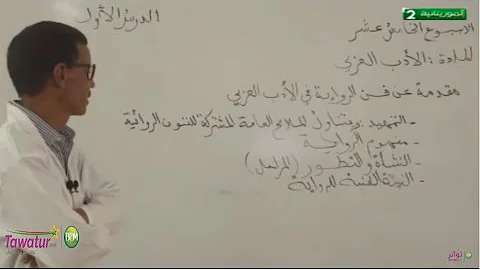 الدرس الأول
الموريتانية 2
الاسبوع الخامس عشر
المادة : الأدب العربي
مقدمة عن فن الرواية في الأدب العربي
- التمهيد : ويتناول الملامح العامة المشتركة للمتون الروائية
- مفهوم الرواية
- النشأة والتطور (المراحل)
- البنية الفنية للرواية
Tawatur.net
تواتر